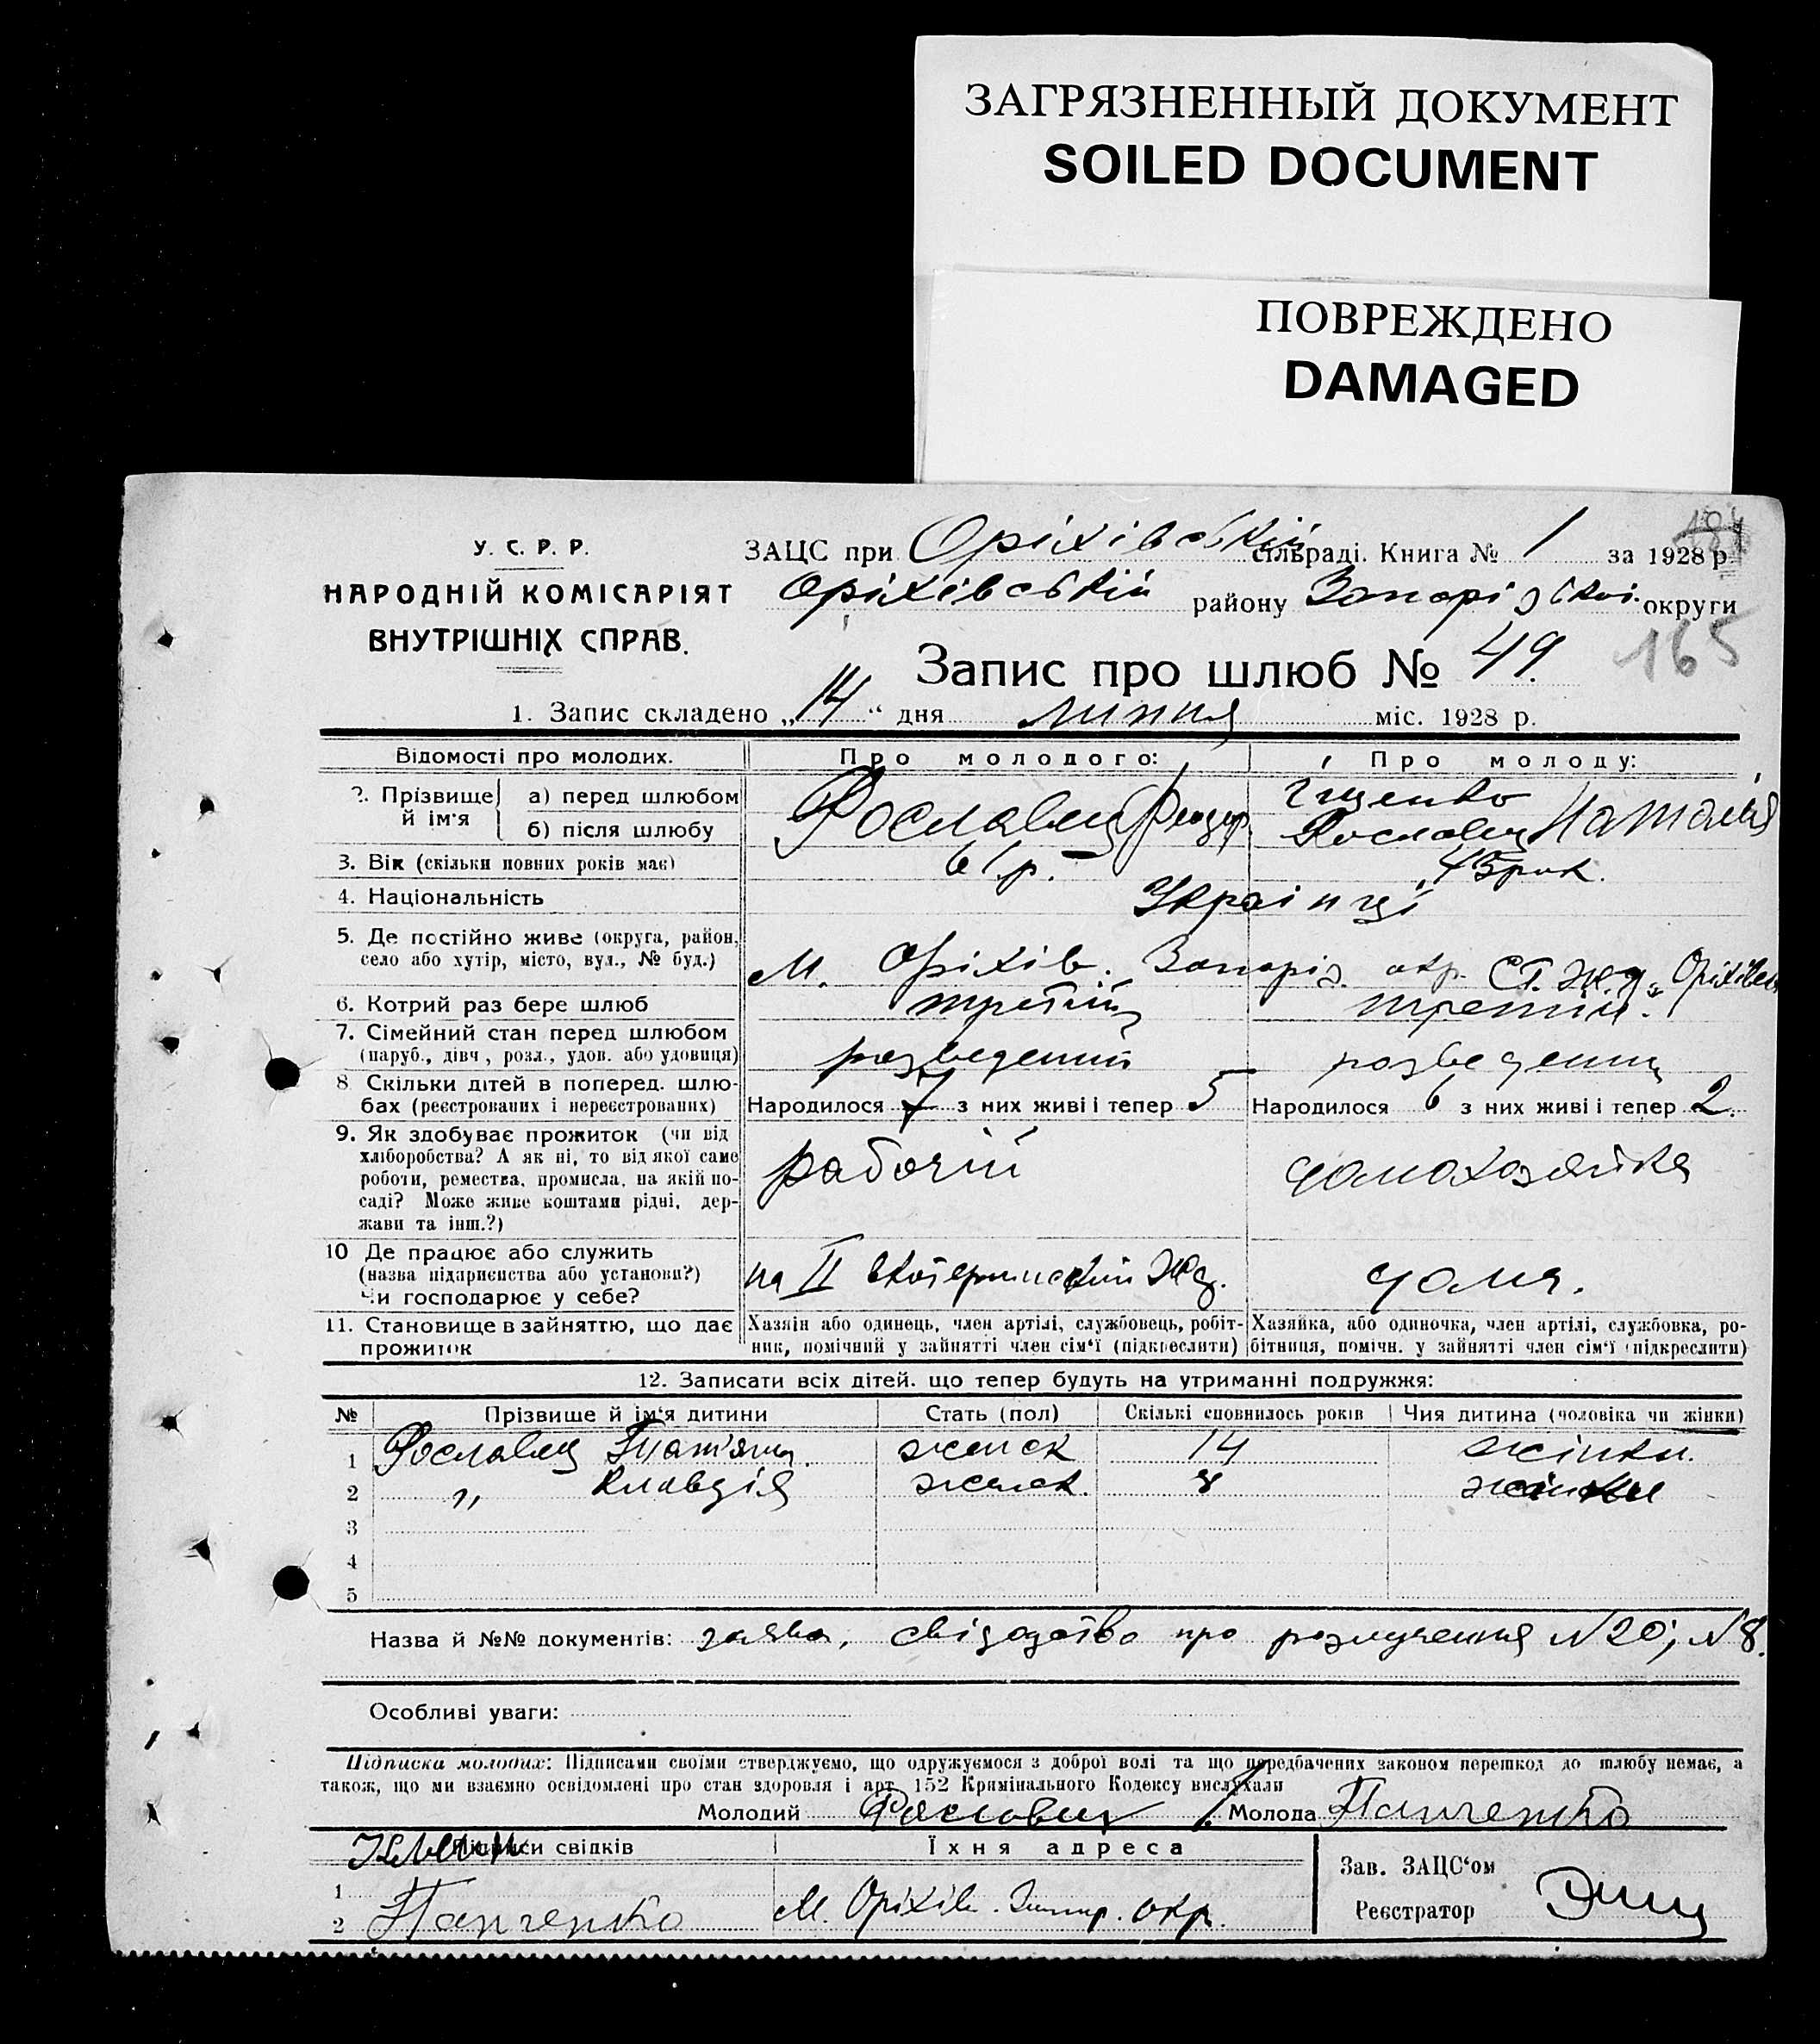 ЗАГРЯЗНЕННЫЙ ДОКУМЕНТ
SOILED DOCUMENT
ПОВРЕЖДЕНО
DAMAGED
У. С. Р. Р.
НАРОДНІЙ КОМІСАРІЯТ
ВНУТРІШНІХ СПРАВ.
ЗАЦС при Оріхівській сільраді. Книга № 1 за 1928 р.
Оріхівській району Запорізької округи
165
Запис про шлюб № 49.
1. Запис складено „14“ дня липня міс. 1928 р.
Відомості про молодих. Про молодого: Про молоду:
2. Прізвище й ім'я а) перед шлюбом б) після шлюбу
Рославец Феодор
Гиценко
Рославец Наталія
3. Вік (скільки повних років має) 61 р. 45 рок.
4. Національність Українці
5. Де постійно живе (округа, район, село або хутір, місто, вул., № буд.)
М. Оріхів. Запоріз. окр. Ст. Ж.д. „Оріхів
6. Котрий раз бере шлюб третій третій.
7. Сімейний стан перед шлюбом
(паруб., дівч., розл., удов. або удовиця) розведений розведении
8 Скільки дітей в поперед. шлю-
бах (реєстрованих і нереєстрованих) Народилося 7 з них живі і тепер 5 Народилося 6 з них живі і тепер 2.
9. Як здобуває прожиток (чи від
хліборобства? А як ні, то від якої саме
роботи, ремества, промисла, на якій по-
саді? Може живе коштами рідні, дер-
жави та інш.?)
рабочій домохозяйка
10 Де працює або служить
(назва підприєнства або установи?)
Чи господарює у себе?
на II Екатерининской Жд. дома.
11. Становище в зайняттю, що дає прожиток
Хазяін або одинець, член артілі, службовець, робіт-
ник, помічний у зайнятті член сім'ї (підкреслити)
Хазяйка, або одиночка, член артілі, службовка, ро-
бітниця, помічн. у зайнятті член сім'ї (підкреслити)
12. Записати всіх дітей. що тепер будуть на утриманні подружжя:
№ Прізвище й ім'я дитини Стать (пол) Скількі сповнилось років Чия дитина (чоловіка чи жінки)
1 Рославец Татьяна. женск 14 жінки.
2 „ Клавдія женск. 8 жінки
3
4
5
Назва й №№ документів: заява, свідоцтво про розлучення №20; №8.
Особливі уваги:
Підписка молодих: Підписами своїми стверджуємо, що одружуємося з доброї волі та що передбачених законом перешкод до шлюбу немає, а
також, що ми взаємно освідомлені про стан здоровля і арт. 152 Кримінального Кодексу вислухали
Молодий Рославец Молода Панченко
Підписи свідків Їхня адреса
1
2 Панченко М. Оріхів. Запор. окр.
Зав. ЗАЦС'ом
Реєстратор